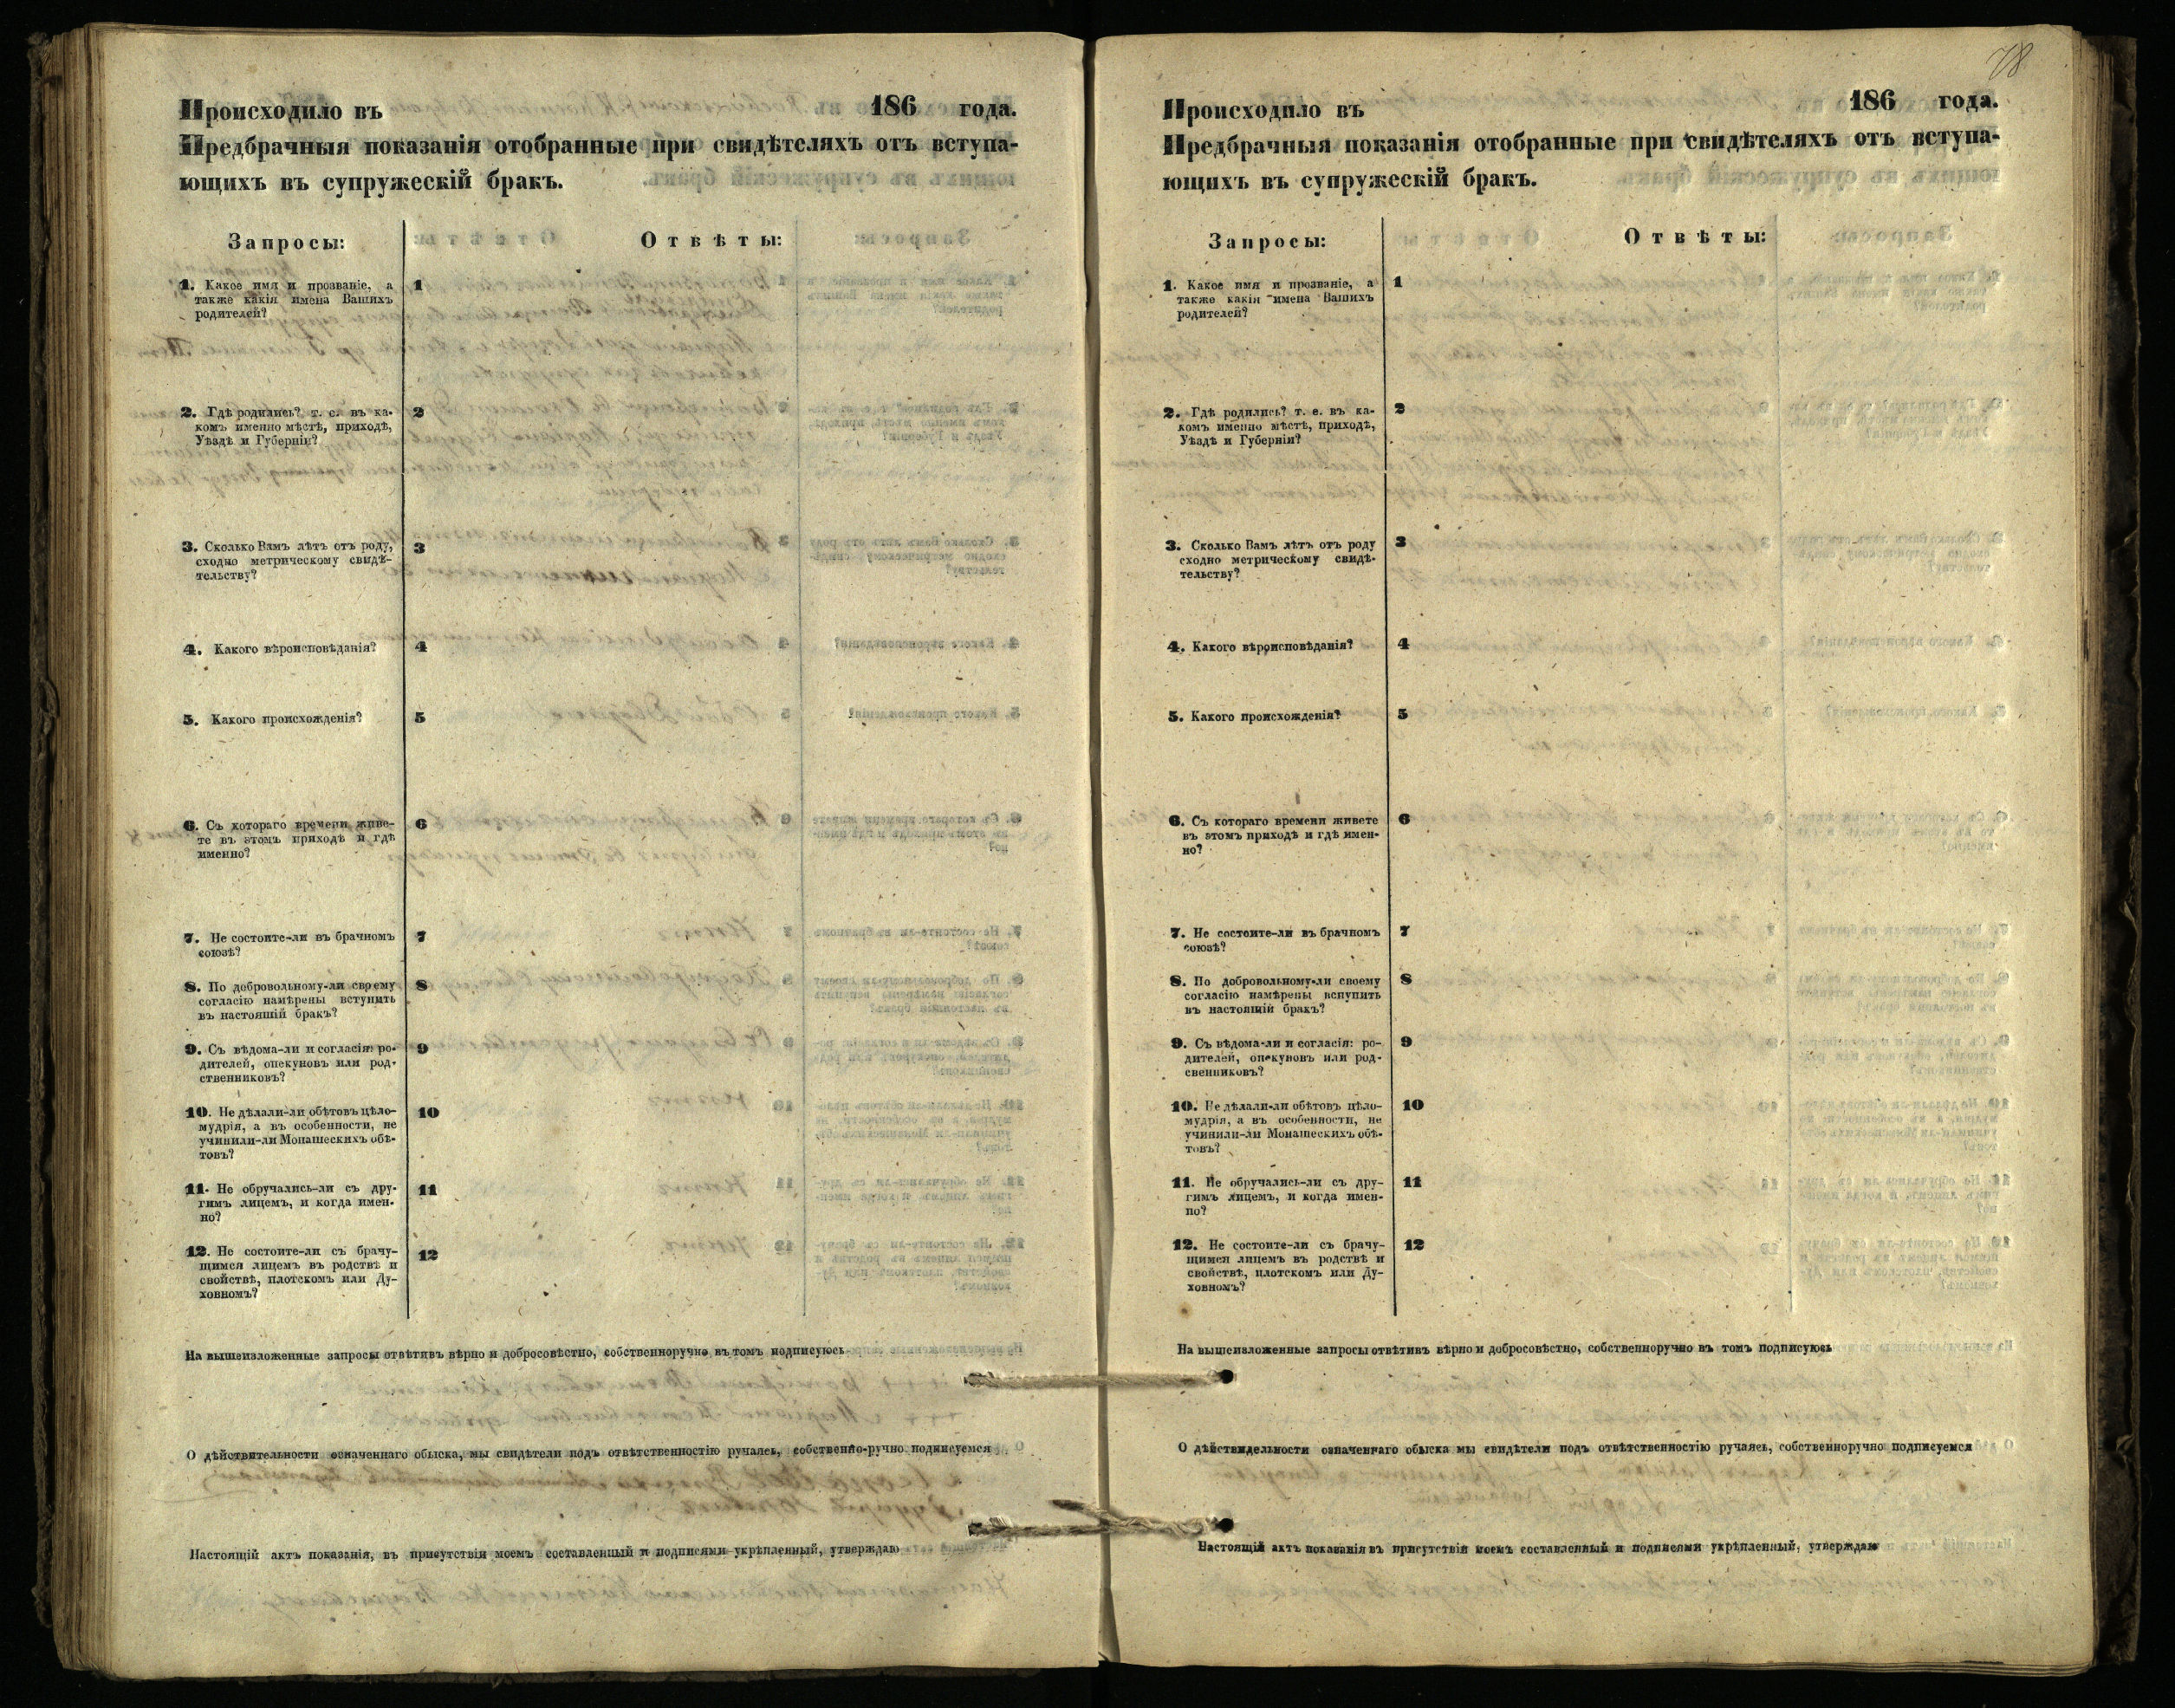 Происходило въ 186 года.
Предбрачныя показанія отобранные при свидѣтеляхъ отъ вступа-
ющихъ въ супружескій бракъ.
Запросы: Отвѣты:
1. Какое имя и прозваніе, а 1
также какія имена Вашихъ
родителей?
2. Гдѣ родились? т. е. въ ка- 2
комъ именно мѣстѣ, приходѣ,
Уѣздѣ и Губерніи?
3. Сколько Вамъ лѣтъ отъ роду, 3
сходно метрическому свидѣ-
тельству?
4. Какого вѣроисповѣданія? 4
5. Какого происхожденія? 5
6. Съ котораго времени живе- 6
те въ этомъ приходѣ и гдѣ
именно?
7. Не состоите-ли въ брачномъ 7
союзѣ?
8. По добровольному-ли своему 8
согласію намѣрены вступить
въ настоящій бракъ?
9. Съ вѣдома-ли и согласія: ро- 9
дителей, опекуновъ или род-
ственниковъ?
10. Не дѣлали-ли обѣтовъ цѣло- 10
мудрія, а въ особенности, не
учинили-ли Монашескихъ обѣ-
товъ?
11. Не обручались-ли съ дру- 11
гимъ лицемъ, и когда имен-
но?
12. Не состоите-ли съ брачу- 12
щимся лицемъ въ родствѣ и
свойствѣ, плотскомъ или Ду-
ховномъ?
На вышеизложенные запросы отвѣтивъ вѣрно и добросовѣстно, собственноручно въ томъ подписуюсь
О дѣйствительности означеннаго обыска, мы свидѣтели подъ отвѣтственностію ручаясь, собственно-ручно подписуемся
Настоящій актъ показанія, въ присутствіи моемъ составленный и подписями укрѣпленный, утверждаю
78
Происходило въ 186 года.
Предбрачныя показанія отобранные при свидѣтеляхъ отъ вступа-
ющихъ въ супружескій бракъ.
Запросы: Отвѣты:
1. Какое имя и прозваніе, а 1
также какія имена Вашихъ
родителей?
2. Гдѣ родились? т. е. въ ка- 2
комъ именно мѣстѣ, приходѣ,
Уѣздѣ и Губерніи?
3. Сколько Вамъ лѣтъ отъ роду 3
сходно метрическому свидѣ-
тельству?
4. Какого вѣроисповѣданія? 4
5. Какого происхожденія? 5
6. Съ котораго времени живете 6
въ этомъ приходѣ и гдѣ имен-
но?
7. Не состоите-ли въ брачномъ 7
союзѣ?
8. По добровольному-ли своему 8
согласію намѣрены вспупить
въ настоящій бракъ?
9. Съ вѣдома-ли и согласія: ро- 9
дителей, опекуновъ или род-
свенниковъ?
10. Не дѣлали-ли обѣтовъ цѣло- 10
мудрія, а въ особенности, не
учинили-ли Монашескихъ обѣ-
товъ?
11. Не обручались-ли съ дру- 11
гимъ лицемъ, и когда имен-
но?
12. Не состоите-ли съ брачу- 12
щимся лицемъ въ родствѣ и
свойствѣ, плотскомъ или Ду-
ховномъ?
На вышеизложенные запросы отвѣтивъ вѣрно и добросовѣстно, собственноручно въ томъ подписуюсь
О дѣйствидельности означеннаго обыска мы свидѣтели подъ отвѣтственностію ручаясь, собственноручно подписуемся
Настоящій актъ показанія въ присутствіи моемъ составленный и подписями укрѣпленный, утверждаю